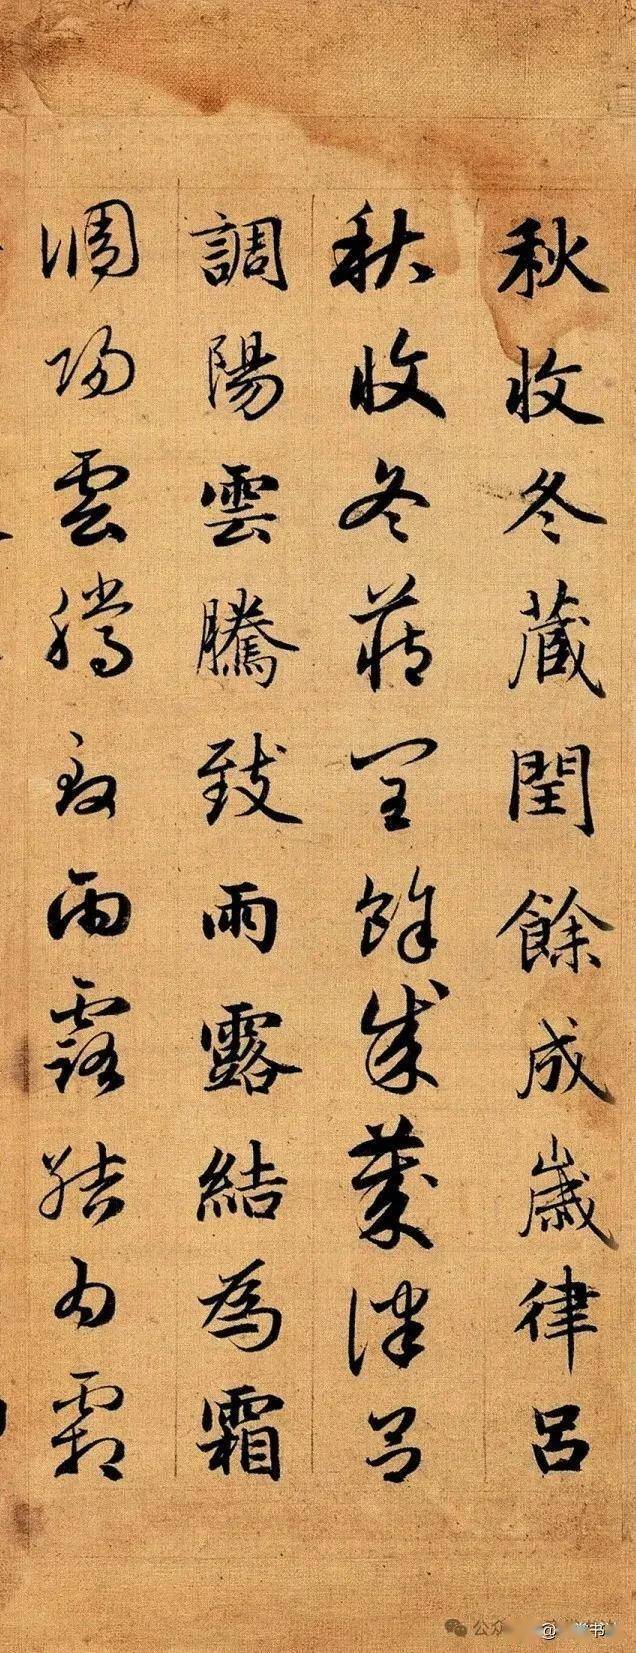 秋收冬藏閏餘成歲律呂
秋收冬藏閏餘成歲律呂
調陽雲騰致雨露結為霜
調陽雲騰致雨露結為霜
公众
@ 学书